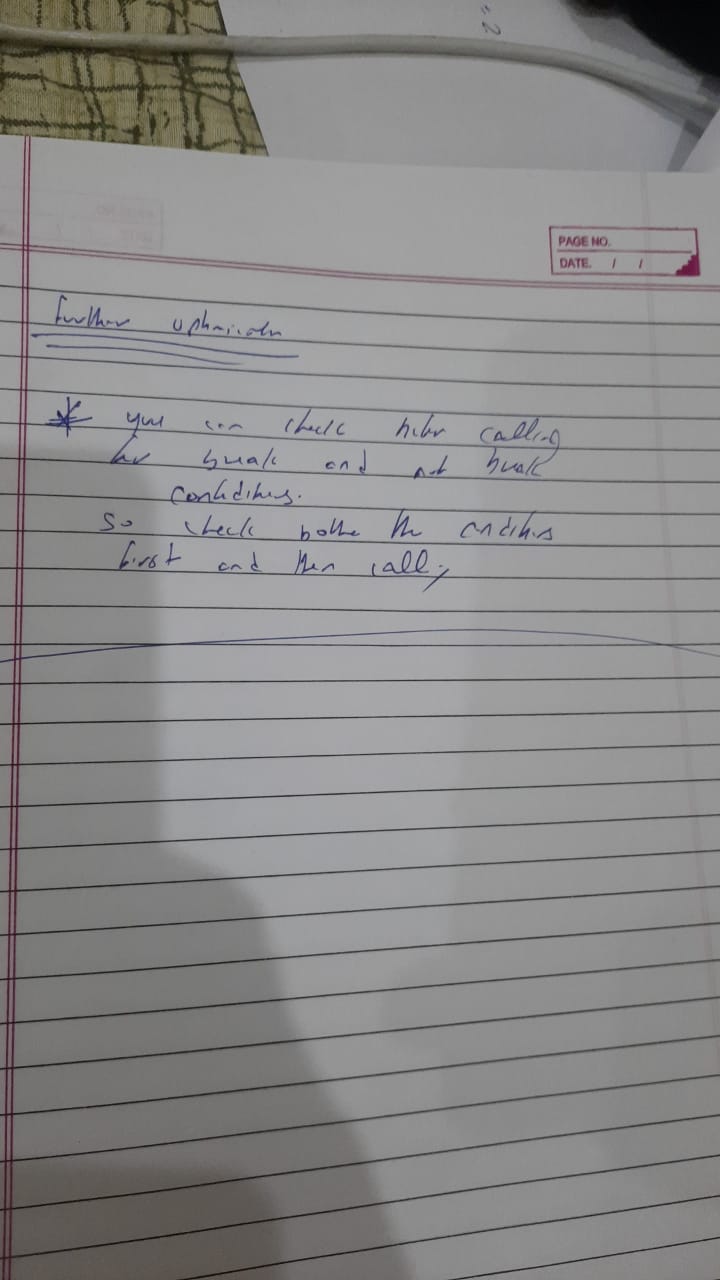 PAGE NO.
DATE. / /
Further
* you can check calling
for break and not break
conditions.
So check both the conditions
first and then call;